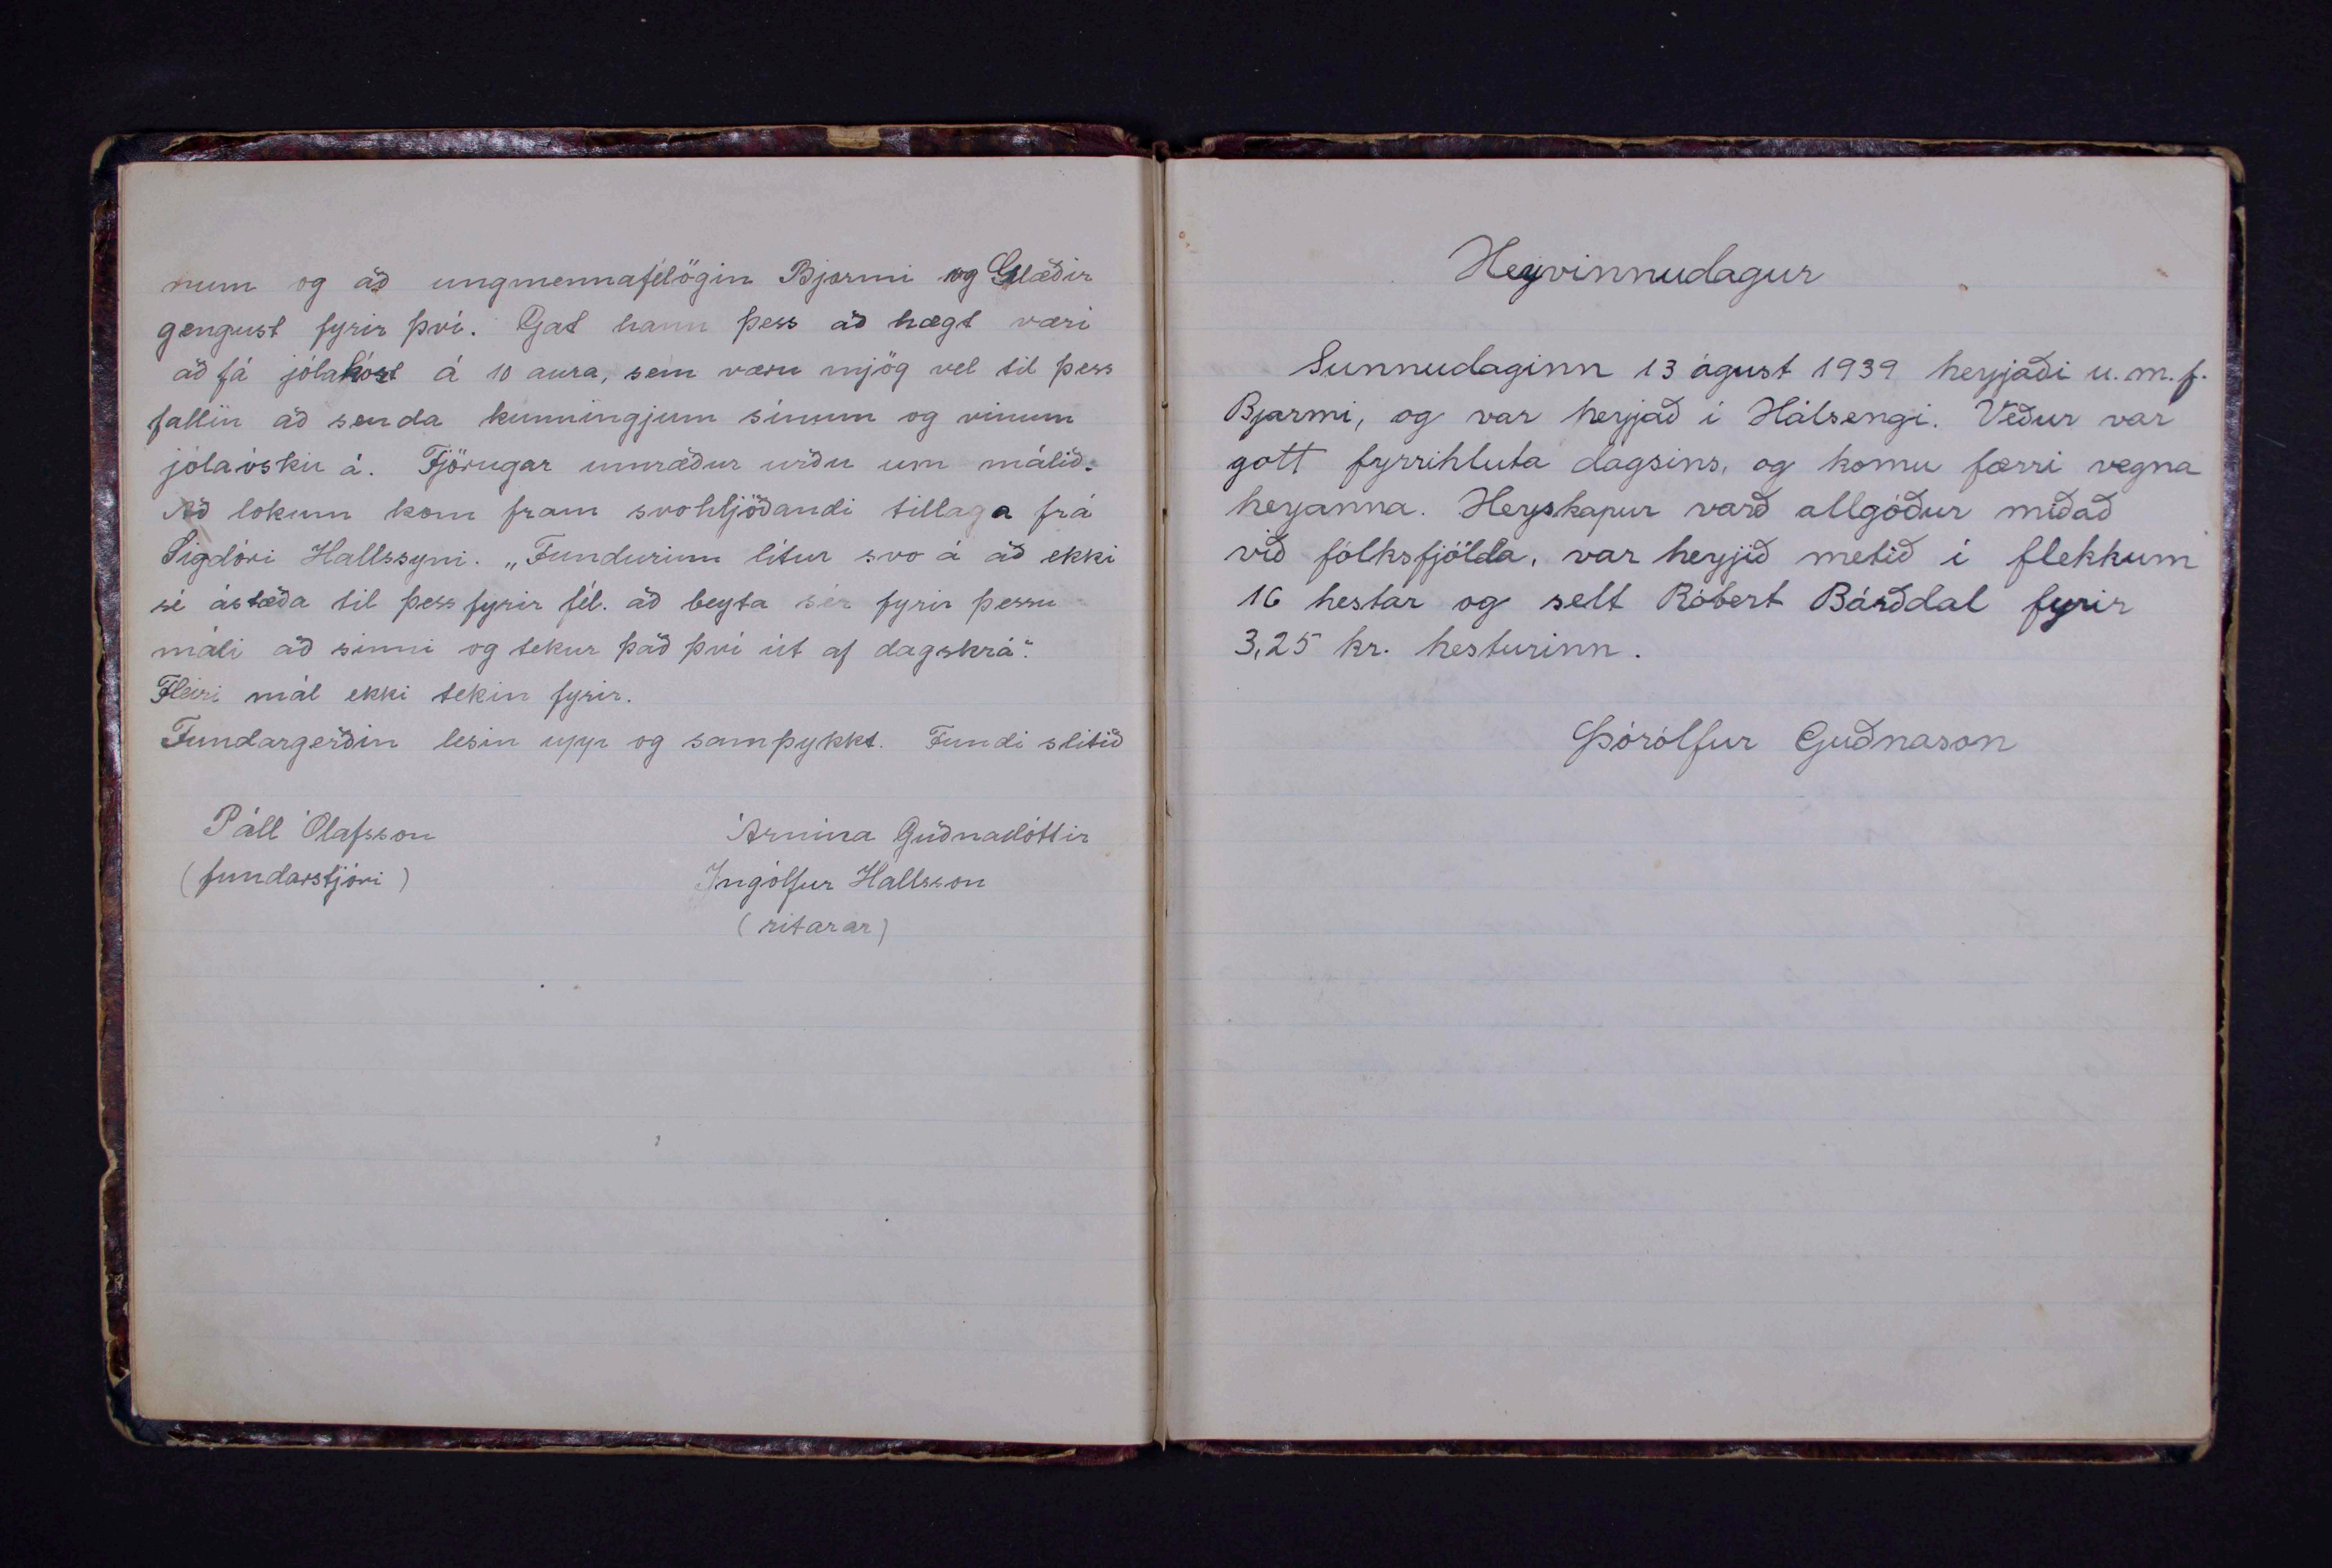 num og að ungmennafélögin Bjarmi og Glæðir
gengust fyrir því. Gat hann þess að hægt væri
að fá jólakort á 10 aura, sem væru mjög vel til þess
fallin að senda kunningjum sínum og vinum
jólaóskir á. Fjörugar umræður urðu um málið.
Að lokum kom fram svohljóðandi tillaga frá
Sigdóri Hallssyni. „Fundurinn lítur svo á að ekki
sé ástæða til þess fyrir fél. að beyta sér fyrir þessu
máli að sinni og tekur það því út af dagskrá".
Fleiri mál ekki tekin fyrir.
Fundargerðin lesin upp og samþykkt. Fundi slitið
Páll Ólafsson
(fundarstjóri)
Árnína Guðnadóttir
Ingólfur Hallsson
(ritarar)
Heyvinnudagur
Sunnudaginn 13 ágúst 1939 heyjaði u.m.f.
Bjarmi, og var heyjað í Hálsengi. Veður var
gott fyrrihluta dagsins, og komu færri vegna
heyanna. Heyskapur varð allgóður miðað
við fólksfjölda, var heyjið metið í flekkum
16 hestar og selt Róbert Bárðdal fyrir
3,25 kr. hesturinn.
Þórólfur Guðnason